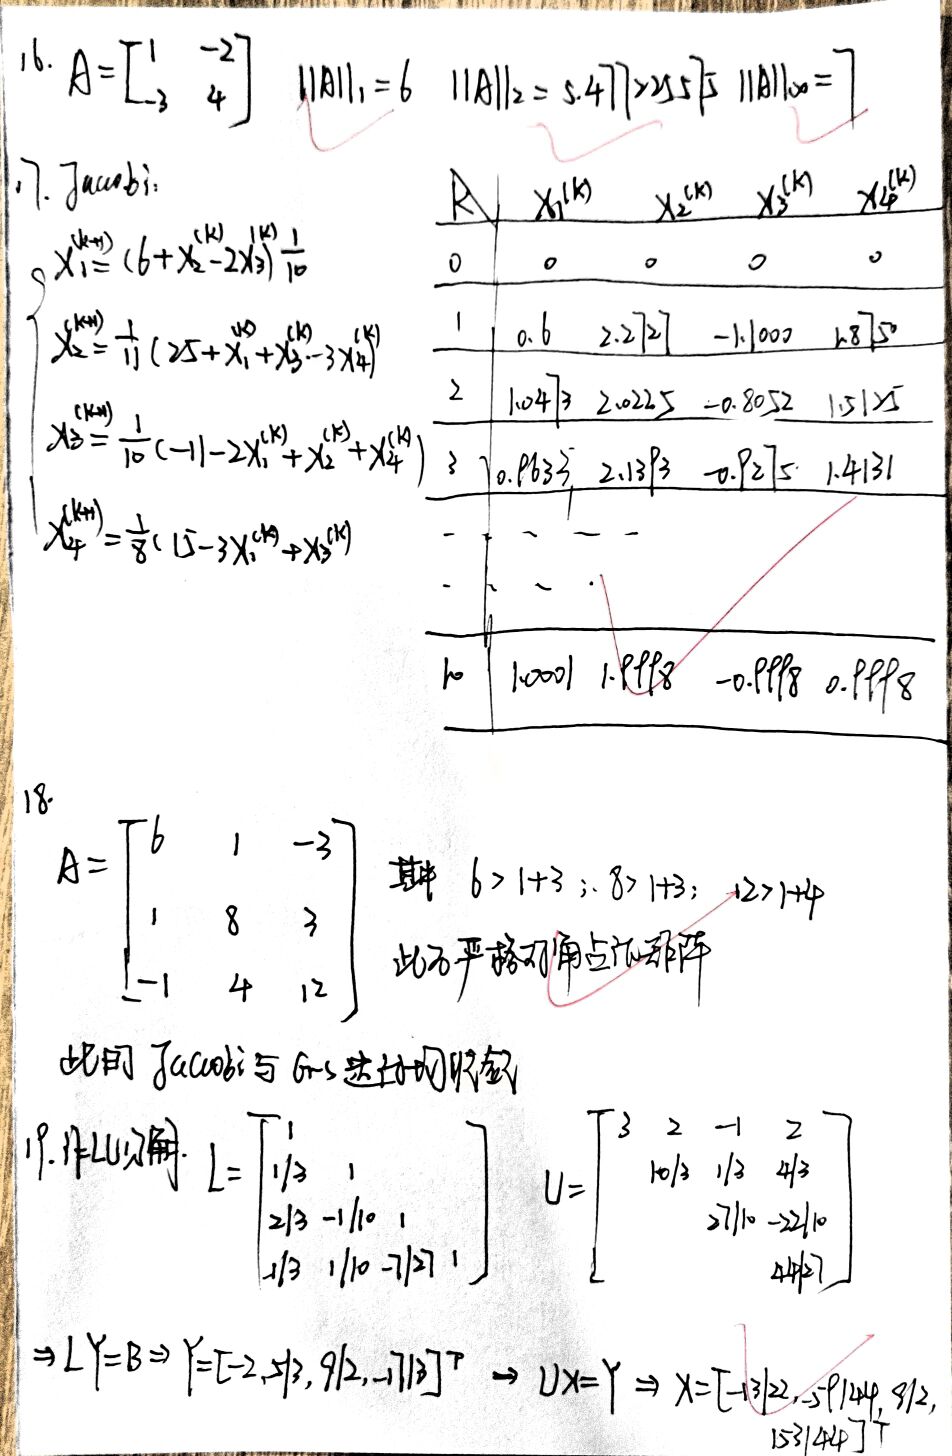 16. A = [1 -2; -3 4] ||A||₁ = 6 ||A||₂ = 5.477225575 ||A||∞ = 7
17. Jacobi:
x₁^(k+1) = (6 + x₂^(k) - 2x₃^(k)) 1/10
x₂^(k+1) = 1/11 (25 + x₁^(k) + x₃^(k) - 3x₄^(k))
x₃^(k+1) = 1/10 (-11 - 2x₁^(k) + x₂^(k) + x₄^(k))
x₄^(k+1) = 1/8 (15 - 3x₁^(k) + x₃^(k))
k x₁^(k) x₂^(k) x₃^(k) x₄^(k)
0 0 0 0 0
1 0.6 2.2727 -1.1000 1.8750
2 1.0473 2.0225 -0.8052 1.5125
3 0.9633 2.1393 -0.9275 1.4131
10 1.0001 1.9998 -0.9998 0.9998
18.
A = [6 1 -3; 1 8 3; -1 4 12]
其中 6 > 1+3 ; 8 > 1+3; 12 > 1+4
此为严格对角占优矩阵
Jacobi 与 G-S 迭代均收敛
19. 作LU分解.
L = [1; 1/3 1; 2/3 -1/10 1; 1/3 1/10 -7/27 1]
U = [3 2 -1 2; 10/3 1/3 4/3; 27/10 -22/10; 44/27]
⇒ LY=B ⇒ Y=[-2, 5/3, 9/2, -17/3]ᵀ → UX=Y ⇒ X=[-13/22, -59/44, 8/2,
153/44]ᵀ